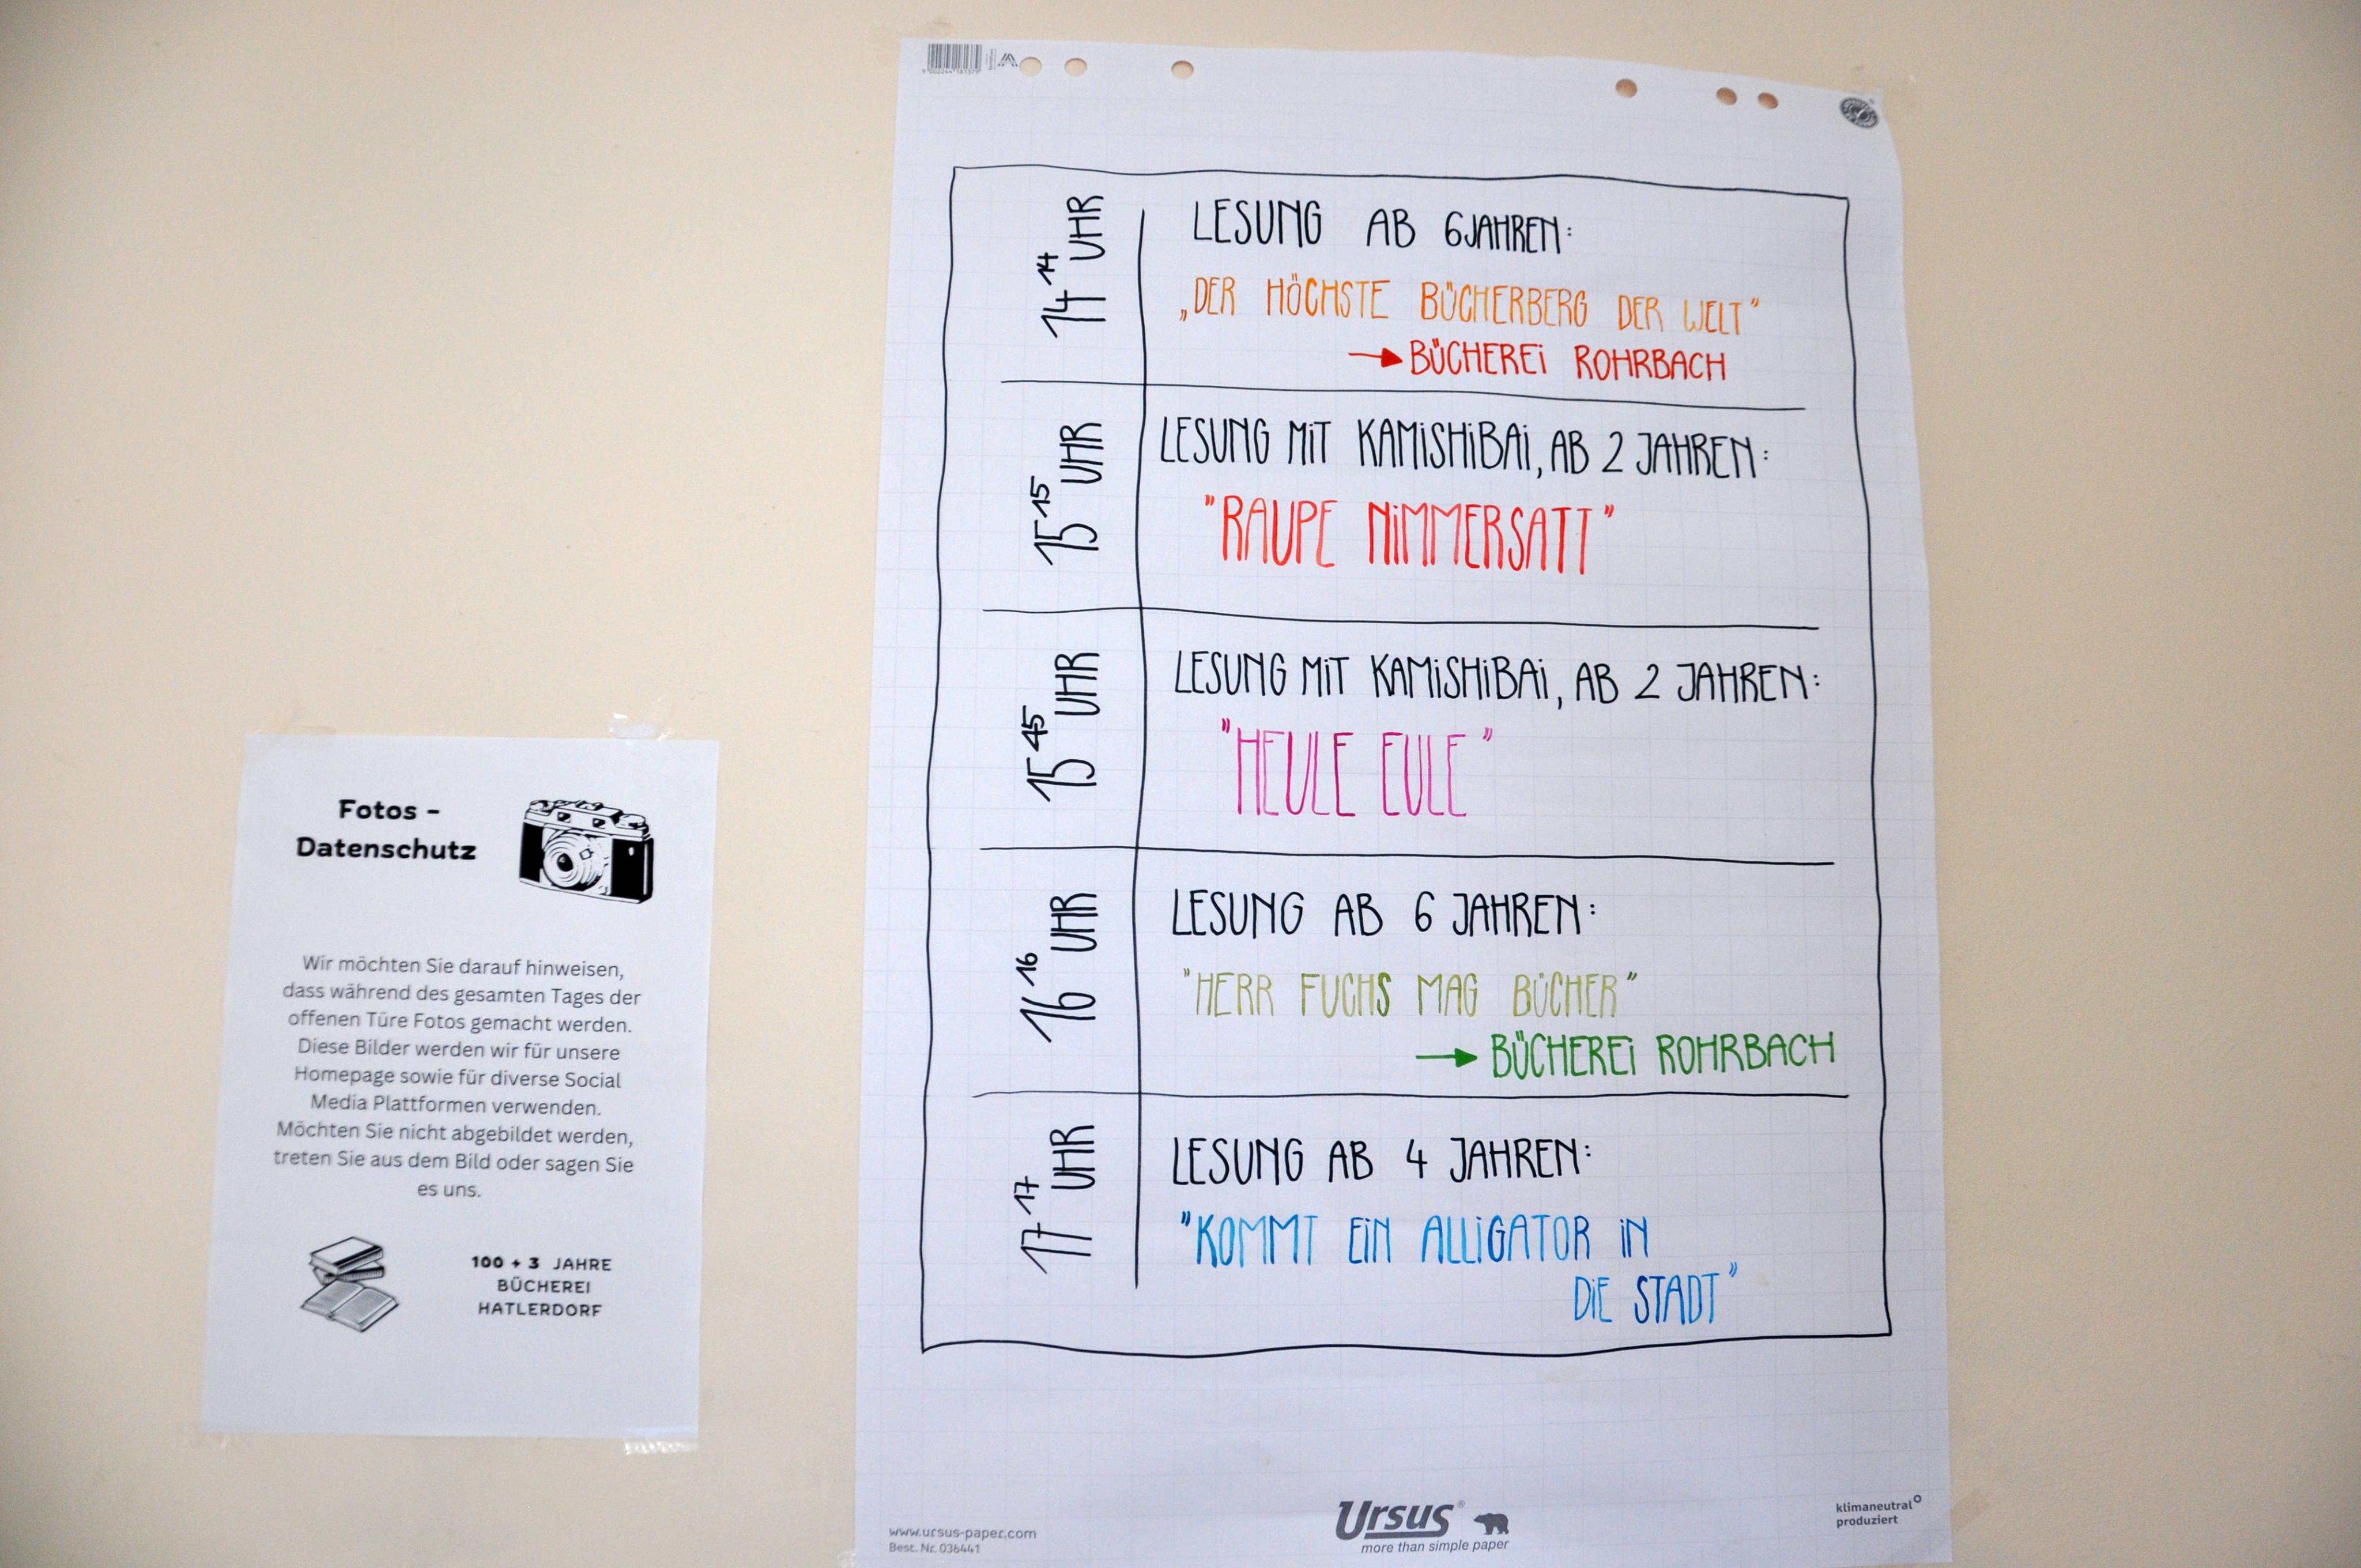 Fotos -
Datenschutz
Wir möchten Sie darauf hinweisen,
dass während des gesamten Tages der
offenen Türe Fotos gemacht werden.
Diese Bilder werden wir für unsere
Homepage sowie für diverse Social
Media Plattformen verwenden.
Möchten Sie nicht abgebildet werden,
treten Sie aus dem Bild oder sagen Sie
es uns.
100 + 3 JAHRE
BÜCHEREI
HATLERDORF
14 14 UHR
LESUNG AB 6 JAHREN:
„DER HÖCHSTE BÜCHERBERG DER WELT"
→ BÜCHEREI ROHRBACH
15 15 UHR
LESUNG MIT KAMISHIBAI, AB 2 JAHREN:
"RAUPE NIMMERSATT"
15 45 UHR
LESUNG MIT KAMISHIBAI, AB 2 JAHREN:
"HEULE EULE"
16 16 UHR
LESUNG AB 6 JAHREN:
"HERR FUCHS MAG BÜCHER"
→ BÜCHEREI ROHRBACH
17 17 UHR
LESUNG AB 4 JAHREN:
"KOMMT EIN ALLIGATOR IN
DIE STADT"
www.ursus-paper.com
Best. Nr. 036441
Ursus®
more than simple paper
klimaneutral
produziert